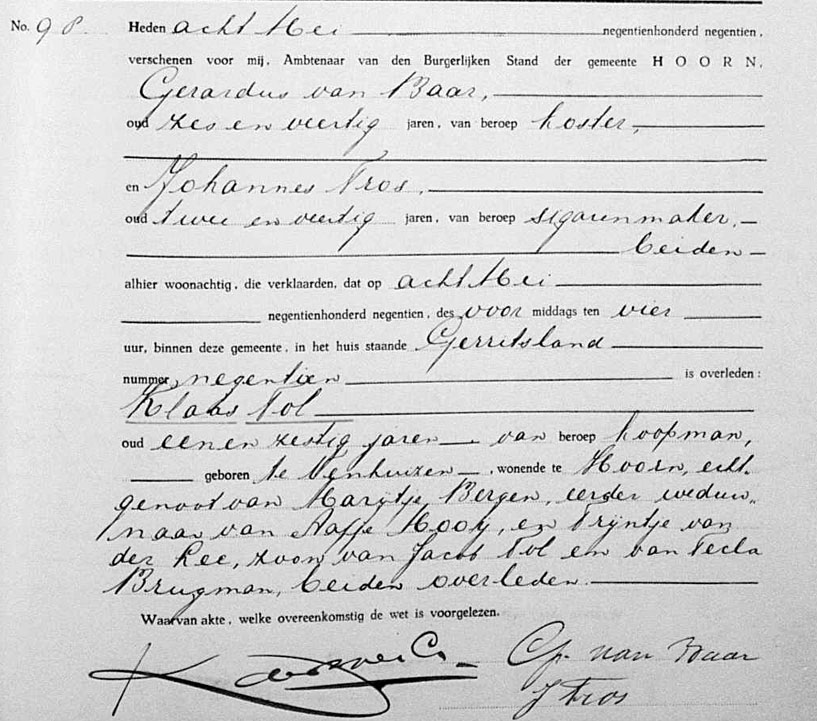 No. 98. Heden acht Mei negentienhonderd negentien,
verschenen voor mij, Ambtenaar van den Burgerlijken Stand der gemeente HOORN,
Gerardus van Baar,
oud zes en veertig jaren, van beroep koster,
en Johannes Tros,
oud twee en veertig jaren, van beroep sigarenmaker,
beiden
alhier woonachtig, die verklaarden, dat op acht Mei
negentienhonderd negentien, des voor middags ten vier
uur, binnen deze gemeente, in het huis staande Gerritsland
nummer negentien is overleden:
Klaas Tol
oud een en zestig jaren van beroep koopman,
geboren te Venhuizen, wonende te Hoorn, echt-
genoot van Marijtje Bergen, eerder weduw-
naar van Aafje Kooy, en Trijntje van
der Lee, zoon van Jacob Tol en van Tecla
Brugman, beiden overleden.
Waarvan akte, welke overeenkomstig de wet is voorgelezen.
G. van Baar
J Tros